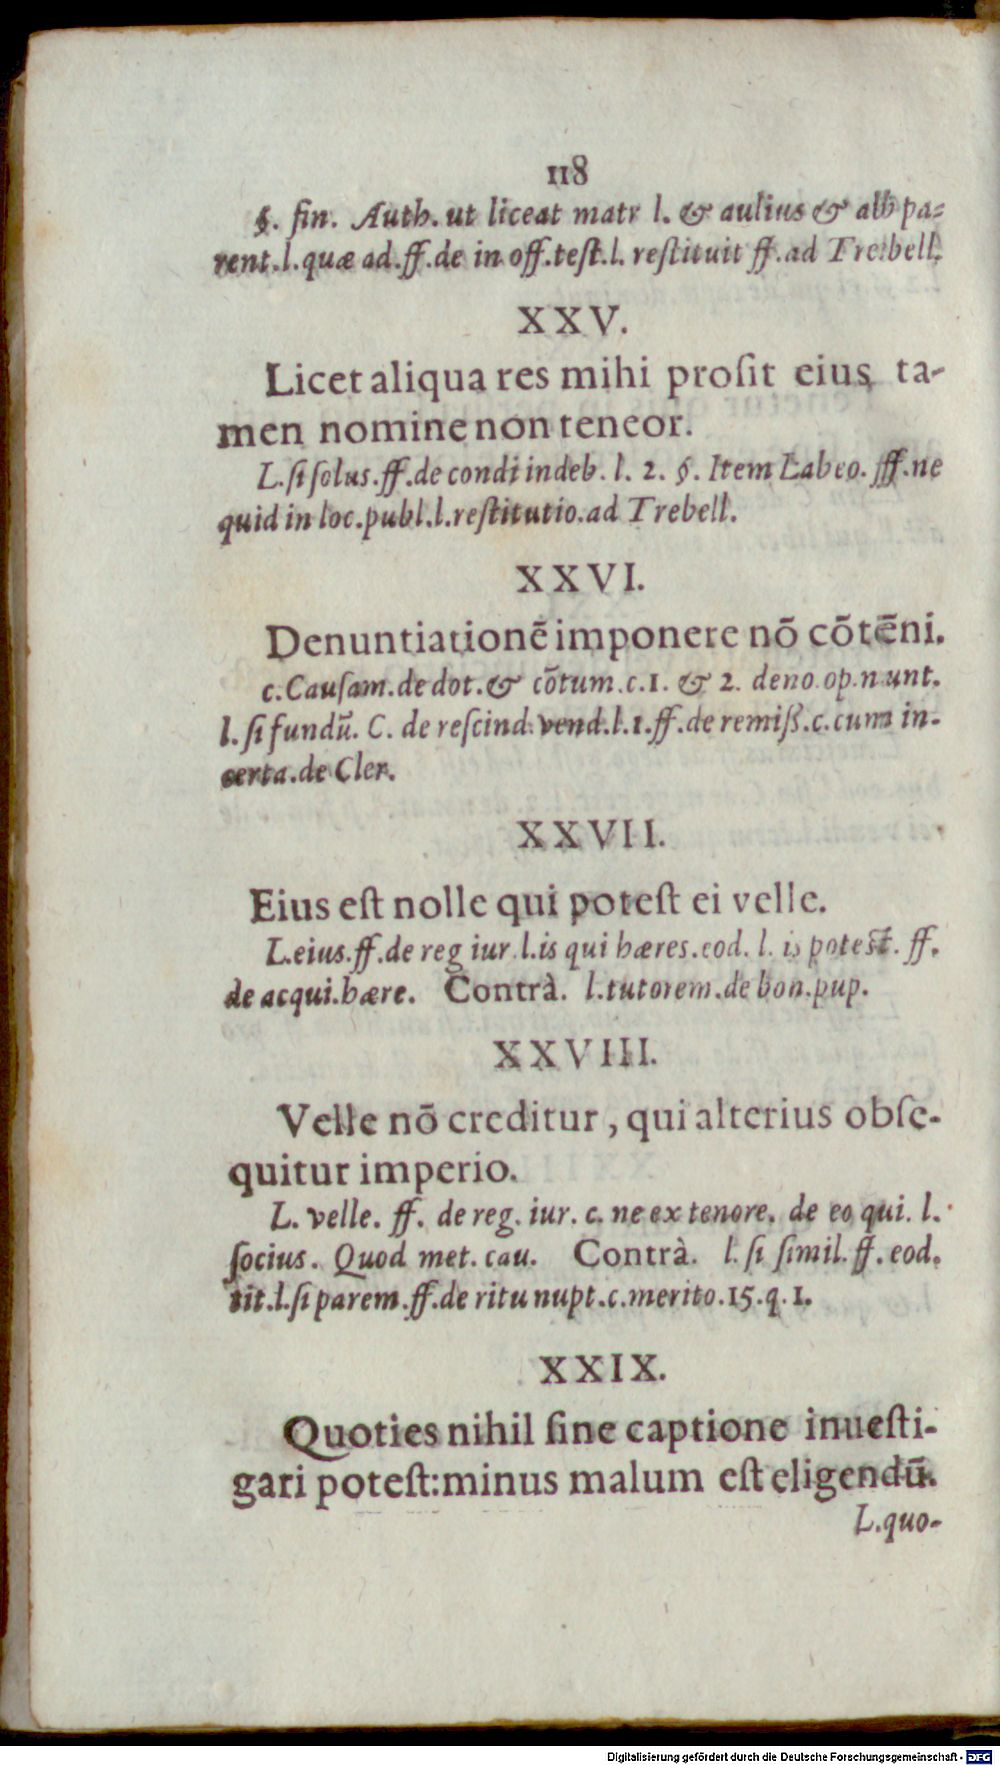 118
§. fin. Auth. ut liceat matr l. & aulius & alb pa=
rent.l.quæ ad.ff.de in off.teſt.l. reſtituit ff.ad Trebell.
XXV.
Licet aliqua res mihi proſit eius ta-
men nomine non teneor.
L.ſi ſolus.ff.de condi indeb. l. 2. §. Item Labeo. ff.ne
quid in loc.publ.l.reſtitutio.ad Trebell.
XXVI.
Denuntiationē imponere nō cōtēni.
c.Cauſam.de dot.& cōtum.c.1. & 2. deno.op.nunt.
l.ſi fundū. C. de reſcind.vend.l.1.ff.de remiß.c.cum in-
certa.de Cler.
XXVII.
Eius eſt nolle qui poteſt ei velle.
L.eius.ff.de reg iur.l.is qui hæres.eod. l. is poteſt. ff.
de acqui.hære. Contrà. l.tutorem.de bon.pup.
XXVIII.
Velle nō creditur, qui alterius obſe-
quitur imperio.
L. velle. ff. de reg. iur. c. ne ex tenore. de eo qui. l.
ſocius. Quod met. cau. Contrà. l. ſi ſimil. ff. eod.
tit.l.ſi parem.ff.de ritu nupt.c.merito.15.q.1.
XXIX.
Quoties nihil ſine captione inueſti-
gari poteſt:minus malum eſt eligendū.
L.quo-
Digitalisierung gefördert durch die Deutsche Forschungsgemeinschaft - DFG